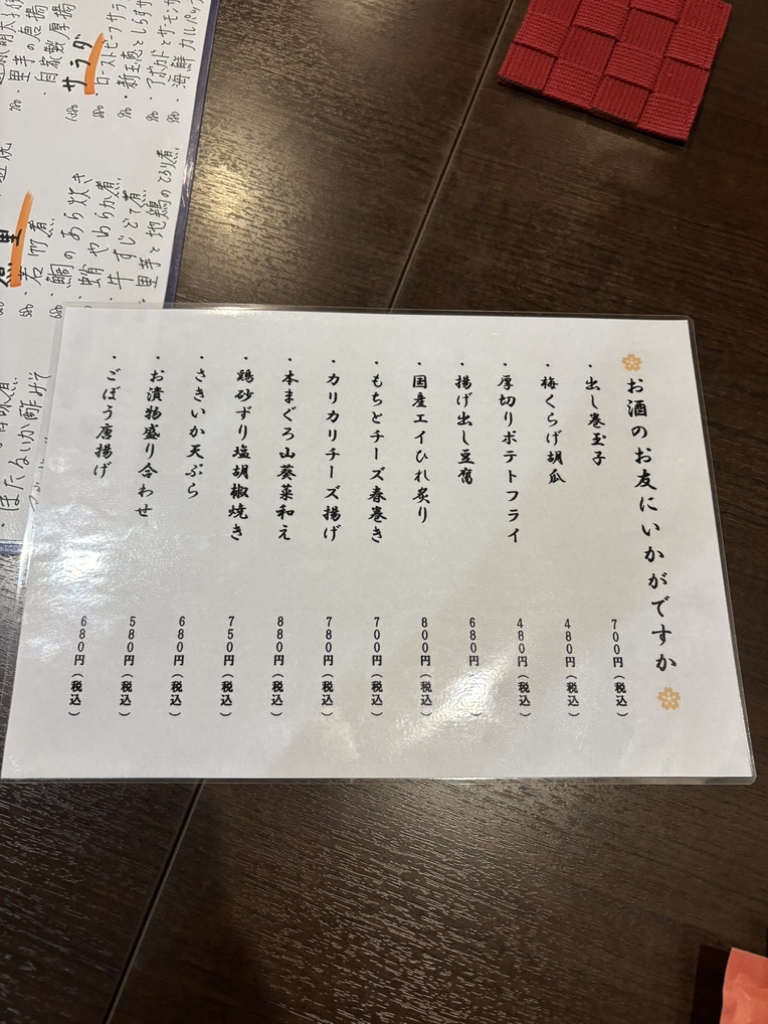 お酒のお友にいかがですか
・出し巻玉子 700円（税込）
・梅くらげ胡瓜 480円（税込）
・厚切りポテトフライ 480円（税込）
・揚げ出し豆腐 680円（税込）
・国産エイひれ炙り 800円（税込）
・もちとチーズ春巻き 700円（税込）
・カリカリチーズ揚げ 780円（税込）
・本まぐろ山葵菜和え 880円（税込）
・鶏砂ずり塩胡椒焼き 750円（税込）
・さきいか天ぷら 680円（税込）
・お漬物盛り合わせ 580円（税込）
・ごぼう唐揚げ 680円（税込）
・海鮮カルパッ
・アボカドとサーモン
・新玉葱としらすサ
・ローストビーフサラ
サラダ
・自家製厚揚
・里芋の唐揚
・里芋と地鶏のとろり煮
・牛すじどて煮
・蛸やわらか煮
・鯛のあら炊き
・若竹煮
・ほたるいか酢みそ